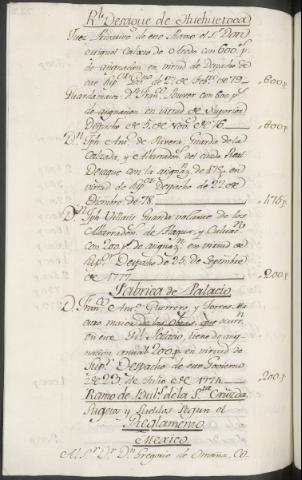 Rl. Desague de Huehuetoca
Juez Privativo de este Ramo el Sr. Dan
Cosme de Mier con 600 ps.
de asignacion en virtud de Despacho de
de 12 de Febo. de 79 600 p.
Guardamaior Dn. con 600 ps.
de asignacion en virtud de Superior
Despacho de 5. de 76 600 p.
Dn. Jph Anto. de Rivera, Guarda de la
Calzada, y Albarradon del citado Real
Desague con la asigNaz.n de 475 p. en
virtud de Supor. Despacho de 22. de
Diciembre de 78. 475 p.
Dn. Jph Guarda de los
Albarradons. de
con 200 p. de asignaz.n en virtud de
Supor. Despacho de 25. de Septiembre
de 1777 200 p.
Fabrica de Palacio
Dn. Franco. Anto. Guerrero, y Torres Ma
estro maior de las Obras, que ocurrn.
en este Rl. Palacio, tiene de asig
nacion anual 200 p. en virtud de
Supor. Despacho de este Govierno
de 29. de Julio de 1774 200 p.
Ramo de Buls. de la Sta. Cruzada
y Sueldos segun el
Reglamento
Mexico
Al Sr. Dr. Dn. Gregorio de Omaña, Co